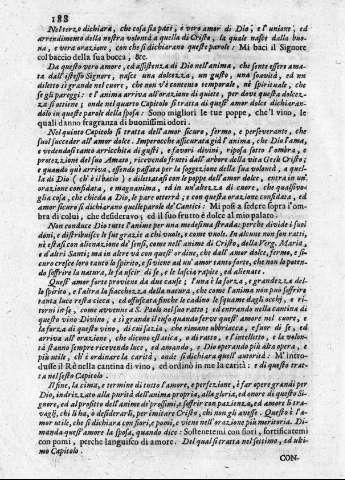 188
Nel terzo dichiara, che cosa sia pace, e vero amor di Dio, e l'unione, ed
arrendimento della nostra volontà a quella di Cristo, la quale nasce dalla buo-
na, e vera orazione, con che si dichiarano queste parole: Mi baci il Signore
col baccio della sua bocca, &c.
Da questo vero amore, ed assistenza di Dio nell'anima, che sente essere ama-
ta dall'istesso Signore, nasce una dolcezza, un gusto, una soavità, ed un
diletto sì grande nel cuore, che non v'è contento temporale, nè spirituale, che
se gli pareggi: e l'anima arriva all'orazione di quiete, per dove questa dolcez-
za si ottiene; onde nel quarto Capitolo si tratta di quest'amor dolce dichiaran-
dolo in queste parole della sposa: Sono migliori le tue poppe, che'l vino, le
quali danno fragranza di buonissimi odori.
Nel quinto Capitolo si tratta dell'amor sicuro, fermo, e perseverante, che
suol succeder all'amor dolce. Imperocchè assicurata già l'anima, che Dio l'ama,
e vedendosi tanto arricchita di gusti, e favori divini, riposa sotto l'ombra, e
protezzione del suo Amato, ricevendo frutti dall'arbore della vita Gesù Cristo;
e quando quì arriva, essendo passata per la soggezzione della sua volontà, a quel-
la di Dio (ch'è il bacio) e dilettatasi con le poppe dell'amor dolce, entra in un'
orazione confidata, e magnanima, ed in un'altezza di cuore, che qualsivo-
glia cosa, che chieda a Dio, le pare otterrà; e con questa orazione confidata, ed
amor sicuro si dichiarano quelle parole de' Cantici: Mi posi a sedere sopra l'om-
bra di colui, che desideravo; ed il suo frutto è dolce al mio palato.
Non conduce Dio tutte l'anime per una medesima strada: perche divide i suoi
doni, e distribuisce le sue grazie a chi vuole, e come vuole. In alcune non son ratti,
nè estasi con alienazione de' sensi, come nell'anime di Cristo, della Verg. Maria,
e d'altri Santi; ma in altre và con quest'ordine, che dall'amor dolce, fermo, e si-
curo cresce loro tanto lo spirito, e si viene ad un'amor tanto forte, che non lo poten-
do soffrire la natura, le fa uscir di se, e le lascia rapite, ed alienate.
Quest'amor forte proviene da due cause; l'una è la forza, e grandezza del-
lo spirito, e l'altra la fiacchezza della natura, che come l'anima non può soffrire
tanta luce resta cieca, ed offuscata finche le cadino le squame dagli occhj, e ri-
torni in se, come avvenne a S. Paolo nel suo ratto; ed entrando nella cantina di
questo vino Divino, è sì grande il caso quando ferve quest'amore nel cuore, e
la forza di questo vino, di cui sazia, che rimane ubbriacca, e fuor di se, ed
arriva all'orazione, che dicono estatica, o di ratto, e l'intelletto, e la volon-
tà stanno sempre ricevendo luce, ed amando, e Dio operando più altro opera, e
più utile, ch'è ordinare la carità, onde si dichiara quell'autorità: M'intro-
dusse il Rè nella cantina di vino, ed ordinò in me la carità: e di questo trat-
ta nel sesto Capitolo.
Il fine, la cima, e termine di tutto l'amore, e perfezzione, è far opere grandi per
Dio, indrizzate alla purità dell'anima propria, alla gloria, ed onore di questo Si-
gnore, ed al profitto dell'anime de' prossimi, e soffrir con pazienza, ed amore li tra-
vaglj, chi li hà, o desiderarli, per imitare Cristo, chi non gli avesse. Questo è l'a-
mor utile, che si dichiara con fiori, e pomi, e viene nell'orazione più meritoria. Di-
mandò quest'amore la sposa, quando dice: Sostenetemi con fiori, fortificatemi
con pomi, perche languisco di amore. Del qual si tratta nel settimo, ed ulti-
mo Capitolo.
CON-